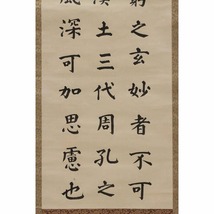 之玄妙者不可
土三代周孔之
風深可加思慮也